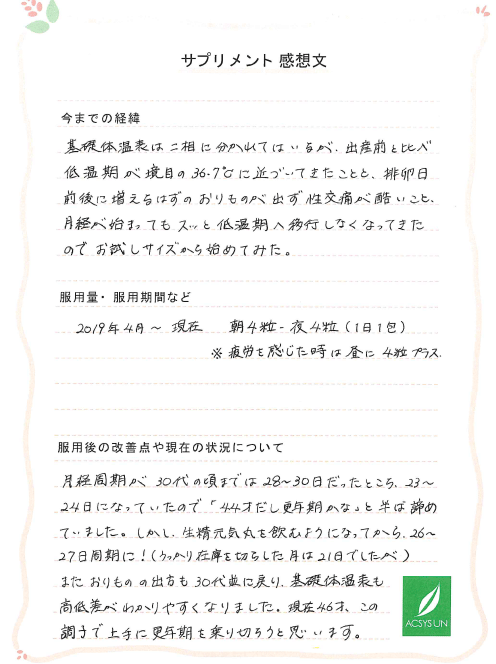 サプリメント 感想文
今までの経緯
基礎体温表は二相に分かれてはいるが、出産前と比べ
低温期が境目の36.7℃に近づいてきたことと、排卵日
前後に増えるはずのおりものが出ず性交痛が酷いこと、
月経が始まってもスッと低温期へ移行しなくなってきた
のでお試しサイズから始めてみた。
服用量・服用期間など
2019年4月〜 現在 朝4粒-夜4粒(1日1包)
※疲労を感じた時は昼に4粒プラス.
服用後の改善点や現在の状況について
月経周期が30代の頃までは28〜30日だったところ、23〜
24日になっていたので「44才だし更年期かな」と半ば諦め
ていました。しかし、生精元気丸を飲むようになってから、26〜
27日周期に!(うっかり在庫を切らした月は21日でしたが)
またおりものの出方も30代並に戻り、基礎体温表も
高低差がわかりやすくなりました。現在46才、この
調子で上手に更年期を乗り切ろうと思います。
ACSYS UN